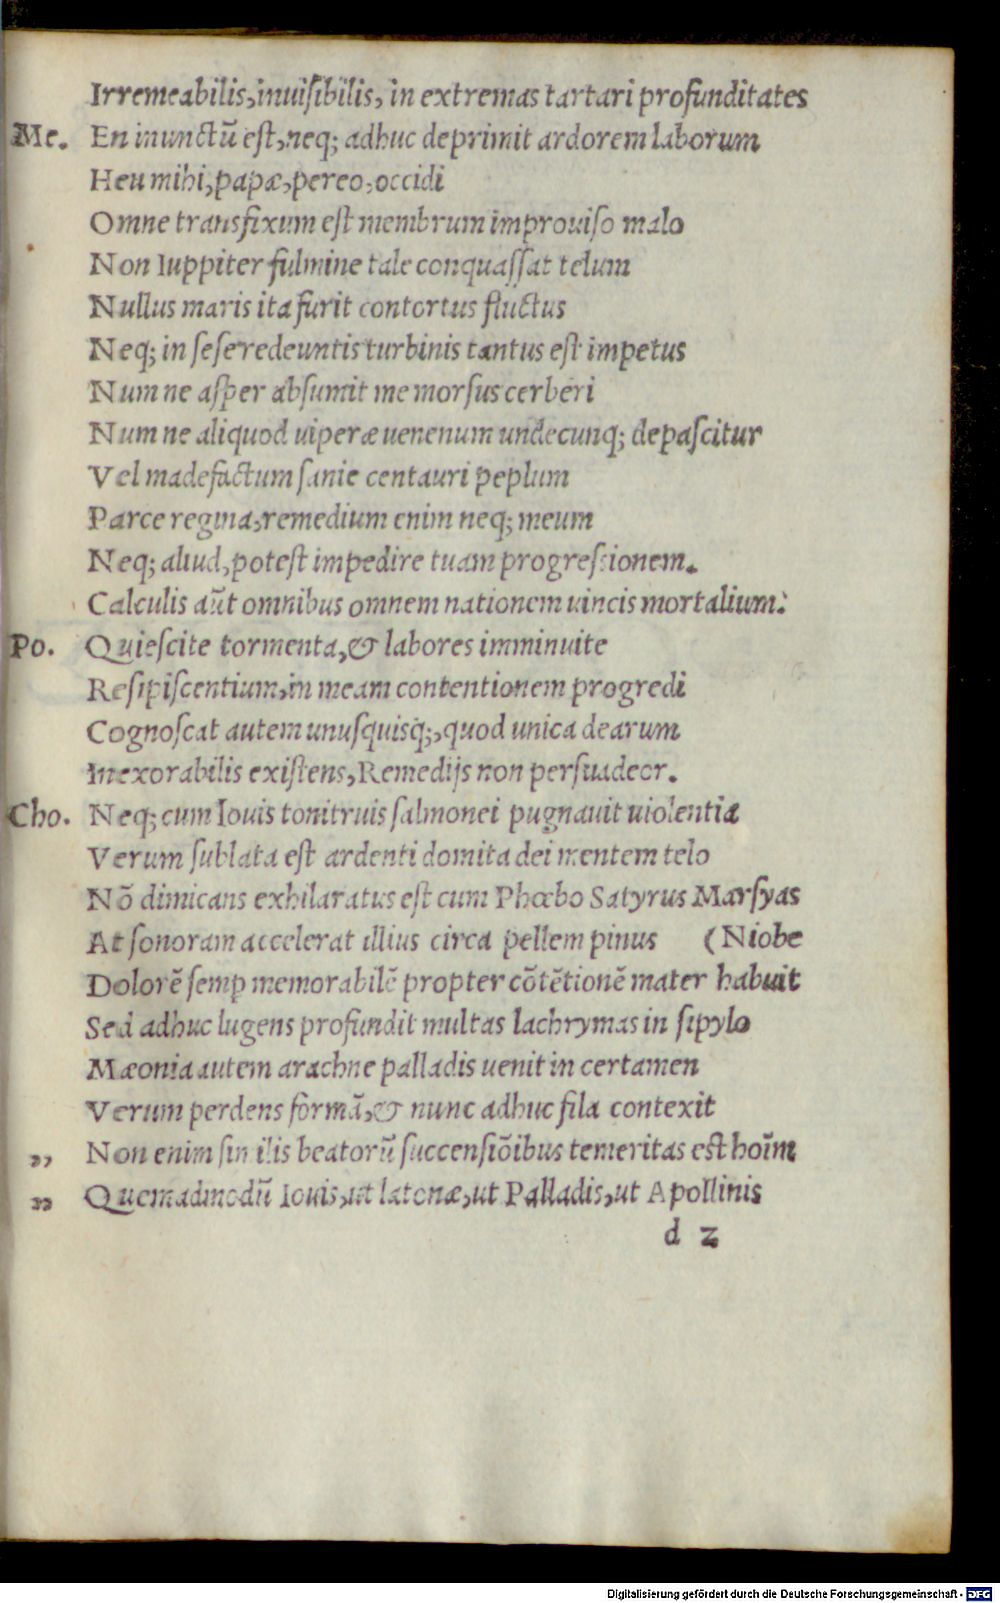 Irremeabilis,inuiſibilis, in extremas tartari profunditates
Me. En inunctū eſt,neq; adhuc deprimit ardorem laborum
Heu mihi,papæ,pereo,occidi
Omne transfixum eſt membrum improuiſo malo
Non Iuppiter fulmine tale conquaſſat telum
Nullus maris ita furit contortus fluctus
Neq; in ſeſe redeuntis turbinis tantus eſt impetus
Num ne aſper abſumit me morſus cerberi
Num ne aliquod uiperæ uenenum undecunq; depaſcitur
Vel madefactum ſanie centauri peplum
Parce regina,remedium enim neq; meum
Neq; aliud,poteſt impedire tuam progreſsionem.
Calculis aūt omnibus omnem nationem uincis mortalium:
Po. Quieſcite tormenta,& labores imminuite
Reſipiſcentium,in meam contentionem progredi
Cognoſcat autem unuſquisq;,quod unica dearum
Inexorabilis exiſtens,Remedijs non perſuadeor.
Cho. Neq; cum Iouis tonitruis ſalmonei pugnauit uiolentia
Verum ſublata eſt ardenti domita dei mentem telo
Nō dimicans exhilaratus eſt cum Phœbo Satyrus Marſyas
At ſonoram accelerat illius circa pellem pinus (Niobe
Dolorē ſemp memorabilē propter cōtētionē mater habuit
Sed adhuc lugens profundit multas lachrymas in ſipylo
Mæonia autem arachne palladis uenit in certamen
Verum perdens formā,& nunc adhuc fila contexit
,, Non enim ſimilis beatorū ſuccenſiōibus temeritas est hoīm
,, Quemadmodū Iouis,ut latonæ,ut Palladis,ut Apollinis
d 2
Digitalisierung gefördert durch die Deutsche Forschungsgemeinschaft - DFG